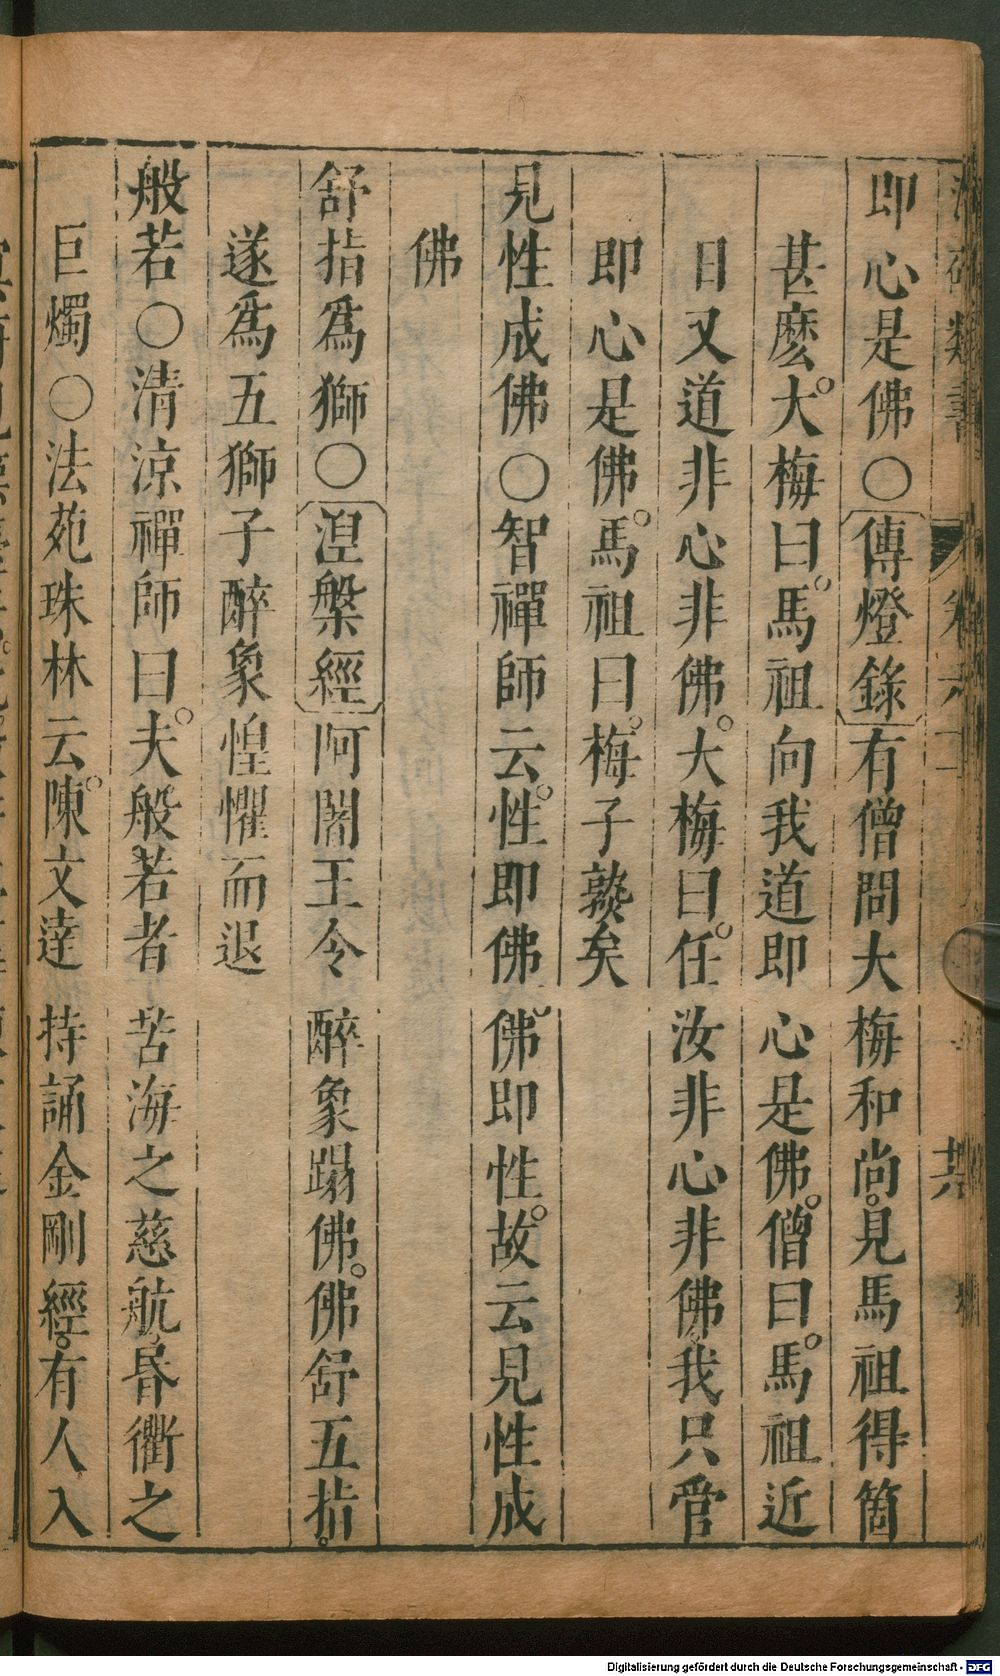 卷六
即心是佛〇傳燈錄有僧問大梅和尚見馬祖得箇
甚麽大梅曰馬祖向我道即心是佛僧曰馬祖近
日又道非心非佛大梅曰任汝非心非佛我只管
即心是佛馬祖曰梅子熟矣
見性成佛〇智禪師云性即佛佛即性故云見性成
佛
舒指爲獅〇涅槃經阿闍王令醉象蹋佛佛舒五指
遂爲五獅子醉象惶懼而退
般若〇清涼禪師曰夫般若者苦海之慈航昏衢之
巨燭〇法苑珠林云陳文達持誦金剛經有人入
Digitalisierung gefördert durch die Deutsche Forschungsgemeinschaft - DFG